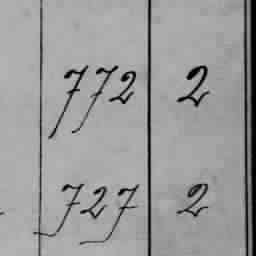 772 2
727 2